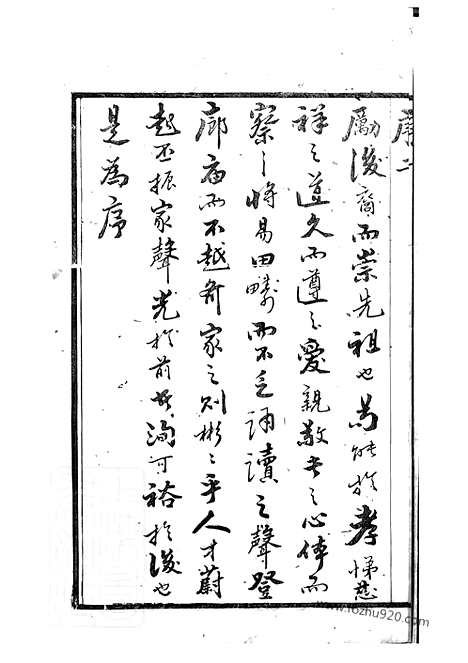 序二
勵後裔而崇先祖也苟能於孝悌慈
祥之道久而遵之愛親敬長之心体而
察之將易田疇而不乏誦讀之聲登
廊庙而不越齐家之则彬之乎人才蔚
起丕振家聲光於前者洵可裕於後也
是為序
www.fozhu920.com